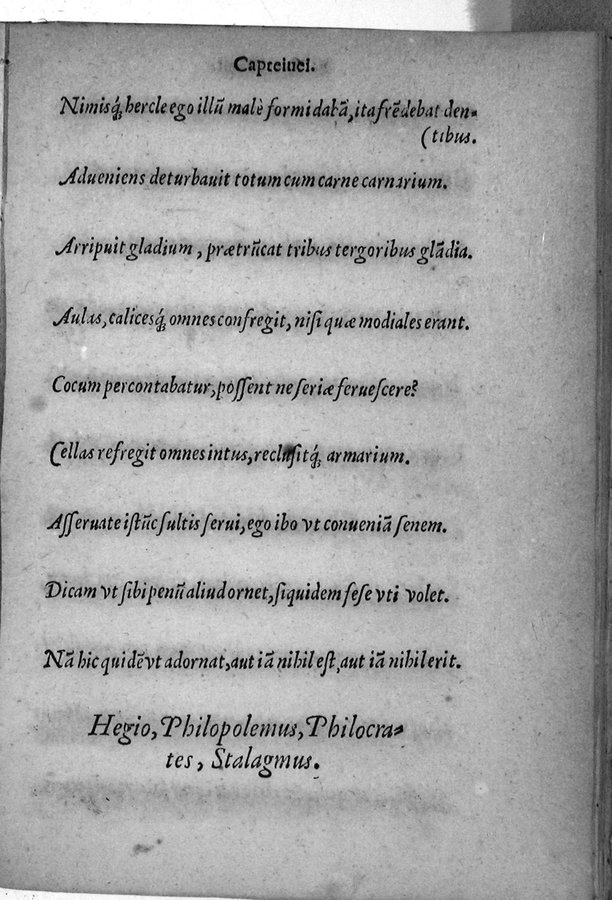 Capteiuei.
Nimisq́ꝫ hercle ego illũ malè formidabã, ita frẽdebat den-
(tibus.
Adueniens deturbauit totum cum carne carnarium.
Arripuit gladium, prætrũcat tribus tergoribus glãdia.
Aulas, calicesq́ꝫ omnes confregit, niſi quæ modiales erant.
Cocum percontabatur, poſſent ne ſeriæ ferueſcere?
Cellas refregit omnes intus, recluſitq́ꝫ armarium.
Aſſeruate iſtũc ſultis ſerui, ego ibo vt conueniã ſenem.
Dicam vt ſibi penũ aliud ornet, ſiquidem ſeſe vti volet.
Nã hic quidẽ vt adornat, aut iã nihil eſt, aut iã nihil erit.
Hegio, Philopolemus, Philocra-
tes, Stalagmus.